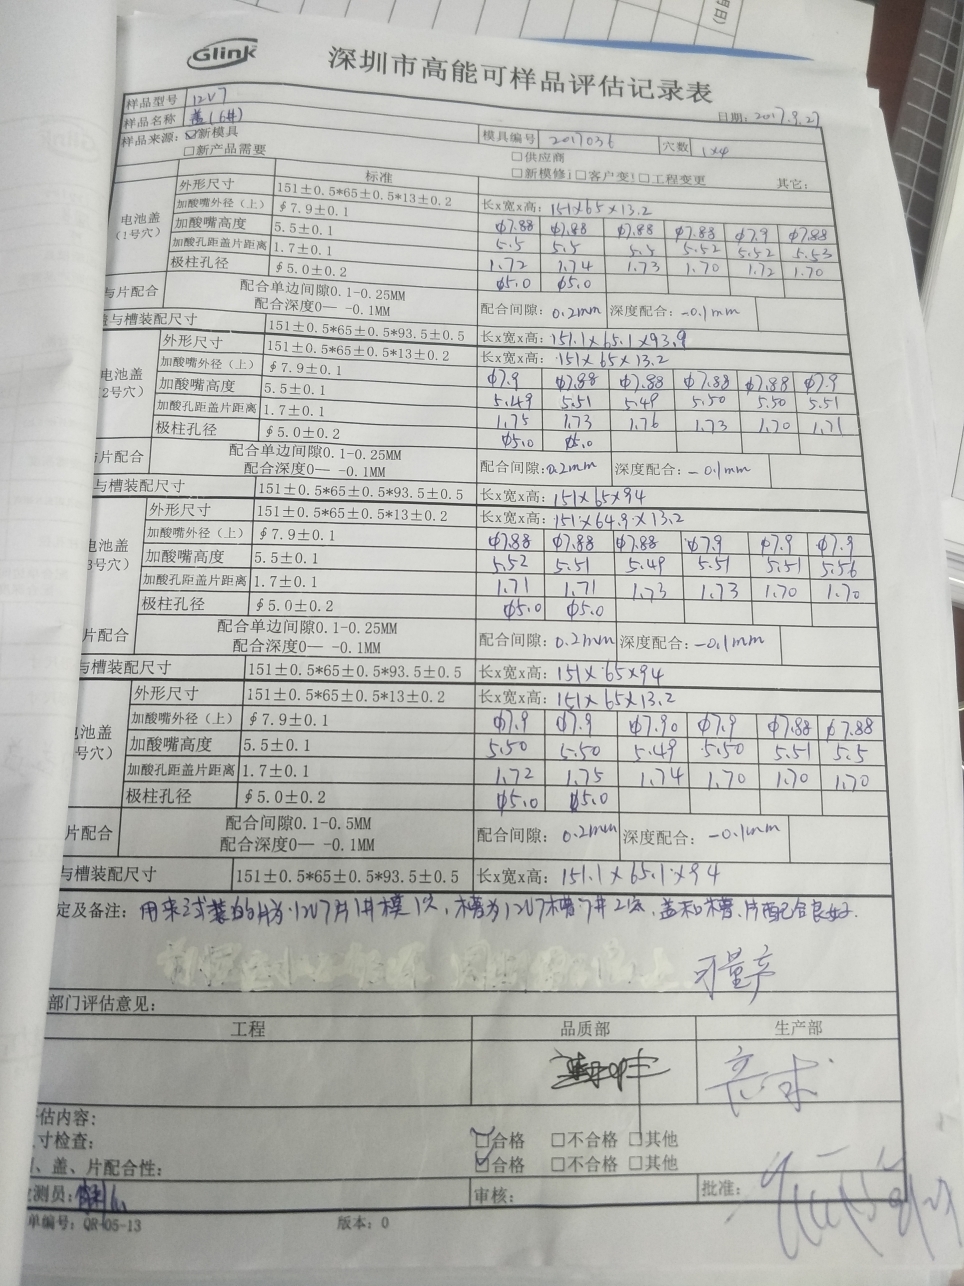 Glink 深圳市高能可样品评估记录表
样品型号 12V7 日期: 2017.9.27
样品名称 盖(6#)
样品来源: ☑新模具 模具编号 2017036 穴数 1×4
□新产品需要 □供应商
□新模修i □客户变! □工程变更 其它:
标准
电池盖 (1号穴)
外形尺寸 151±0.5*65±0.5*13±0.2 长x宽x高: 151×65×13.2
加酸嘴外径（上） ∮7.9±0.1 φ7.88 φ7.88 φ7.88 φ7.88 φ7.9 φ7.88
加酸嘴高度 5.5±0.1 5.5 5.5 5.5 5.52 5.52 5.53
加酸孔距盖片距离 1.7±0.1 1.72 1.74 1.73 1.70 1.72 1.70
极柱孔径 ∮5.0±0.2 φ5.0 φ5.0
与片配合 配合单边间隙0.1-0.25MM
配合深度0— -0.1MM 配合间隙: 0.2mm 深度配合: -0.1mm
与槽装配尺寸 151±0.5*65±0.5*93.5±0.5 长x宽x高: 151.1×65.1×93.9
电池盖 2号穴)
外形尺寸 151±0.5*65±0.5*13±0.2 长x宽x高: 151×65×13.2
加酸嘴外径（上） ∮7.9±0.1 φ7.9 φ7.88 φ7.88 φ7.88 φ7.88 φ7.9
加酸嘴高度 5.5±0.1 5.49 5.51 5.49 5.50 5.50 5.51
加酸孔距盖片距离 1.7±0.1 1.75 1.73 1.76 1.73 1.70 1.71
极柱孔径 ∮5.0±0.2 φ5.0 φ5.0
片配合 配合单边间隙0.1-0.25MM
配合深度0— -0.1MM 配合间隙: 0.2mm 深度配合: -0.1mm
与槽装配尺寸 151±0.5*65±0.5*93.5±0.5 长x宽x高: 151×65×94
电池盖 3号穴)
外形尺寸 151±0.5*65±0.5*13±0.2 长x宽x高: 151×64.9×13.2
加酸嘴外径（上） ∮7.9±0.1 φ7.88 φ7.88 φ7.88 φ7.9 φ7.9 φ7.9
加酸嘴高度 5.5±0.1 5.52 5.51 5.49 5.51 5.51 5.56
加酸孔距盖片距离 1.7±0.1 1.71 1.71 1.73 1.73 1.70 1.70
极柱孔径 ∮5.0±0.2 φ5.0 φ5.0
片配合 配合单边间隙0.1-0.25MM
配合深度0— -0.1MM 配合间隙: 0.2mm 深度配合: -0.1mm
与槽装配尺寸 151±0.5*65±0.5*93.5±0.5 长x宽x高: 151×65×94
池盖 号穴)
外形尺寸 151±0.5*65±0.5*13±0.2 长x宽x高: 151×65×13.2
加酸嘴外径（上） ∮7.9±0.1 φ7.9 φ7.9 φ7.90 φ7.9 φ7.88 φ7.88
加酸嘴高度 5.5±0.1 5.50 5.50 5.49 5.50 5.51 5.5
加酸孔距盖片距离 1.7±0.1 1.72 1.75 1.74 1.70 1.70 1.70
极柱孔径 ∮5.0±0.2 φ5.0 φ5.0
片配合 配合间隙0.1-0.5MM
配合深度0— -0.1MM 配合间隙: 0.2mm 深度配合: -0.1mm
与槽装配尺寸 151±0.5*65±0.5*93.5±0.5 长x宽x高: 151.1×65.1×94
定及备注: 用来试装的片为12V7片1#模1穴, 槽为12V7槽7#2穴, 盖和槽、片配合良好.
可量产
部门评估意见:
工程 品质部 生产部
估内容:
寸检查: ☑合格 □不合格 □其他
、盖、片配合性: ☑合格 □不合格 □其他
测员: 审核: 批准:
单编号: QR-05-13 版本: 0